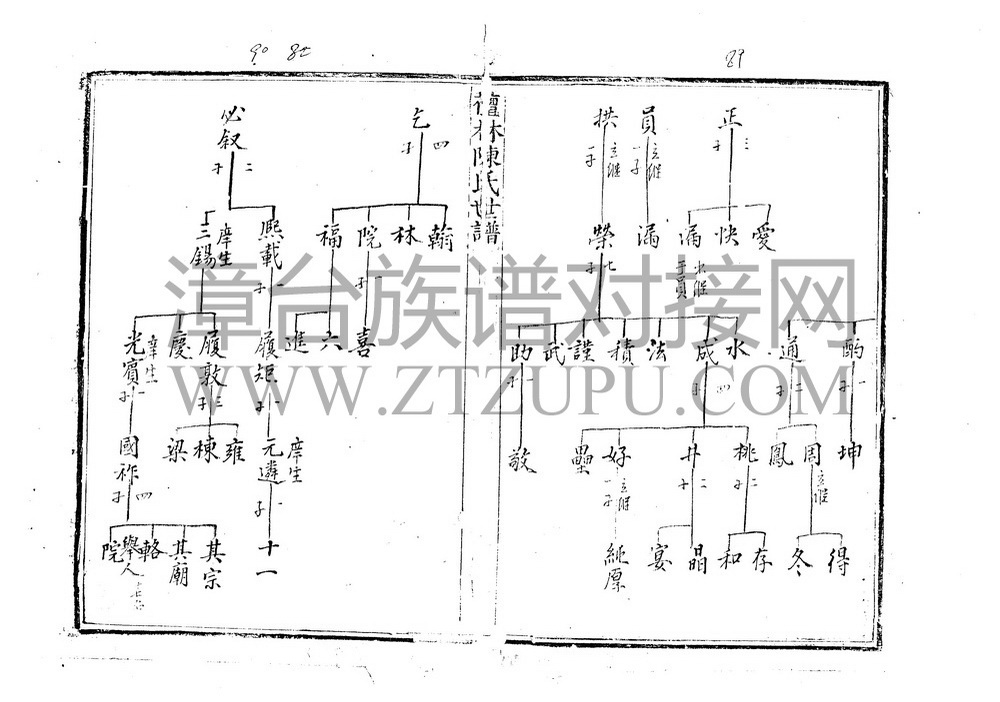 89
正
三子
員
立継一子
拱
立继一子
愛
快
漏
出继于員
漏
榮
七子
酌
一子
通
二子
水
成
四子
法
積
謹
武
助
一子
坤
周
立继
鳳
桃
二子
廾
二子
好
立继一子
壘
敬
得
冬
存
和
晶
宴
純原
舊林陳氏世譜
90
乞
四子
必叙
二子
翰
林
院
一子
福
熙載
一子
庠生
三錫
喜
六
進
履矩
一子
履敦
三子
慶
庠生
光賓
一子
庠生
元遴
一子
雍
棟
梁
國祚
四子
十一
其宗
其廟
輅
舉人
院
漳台族谱对接网
WWW.ZTZUPU.COM